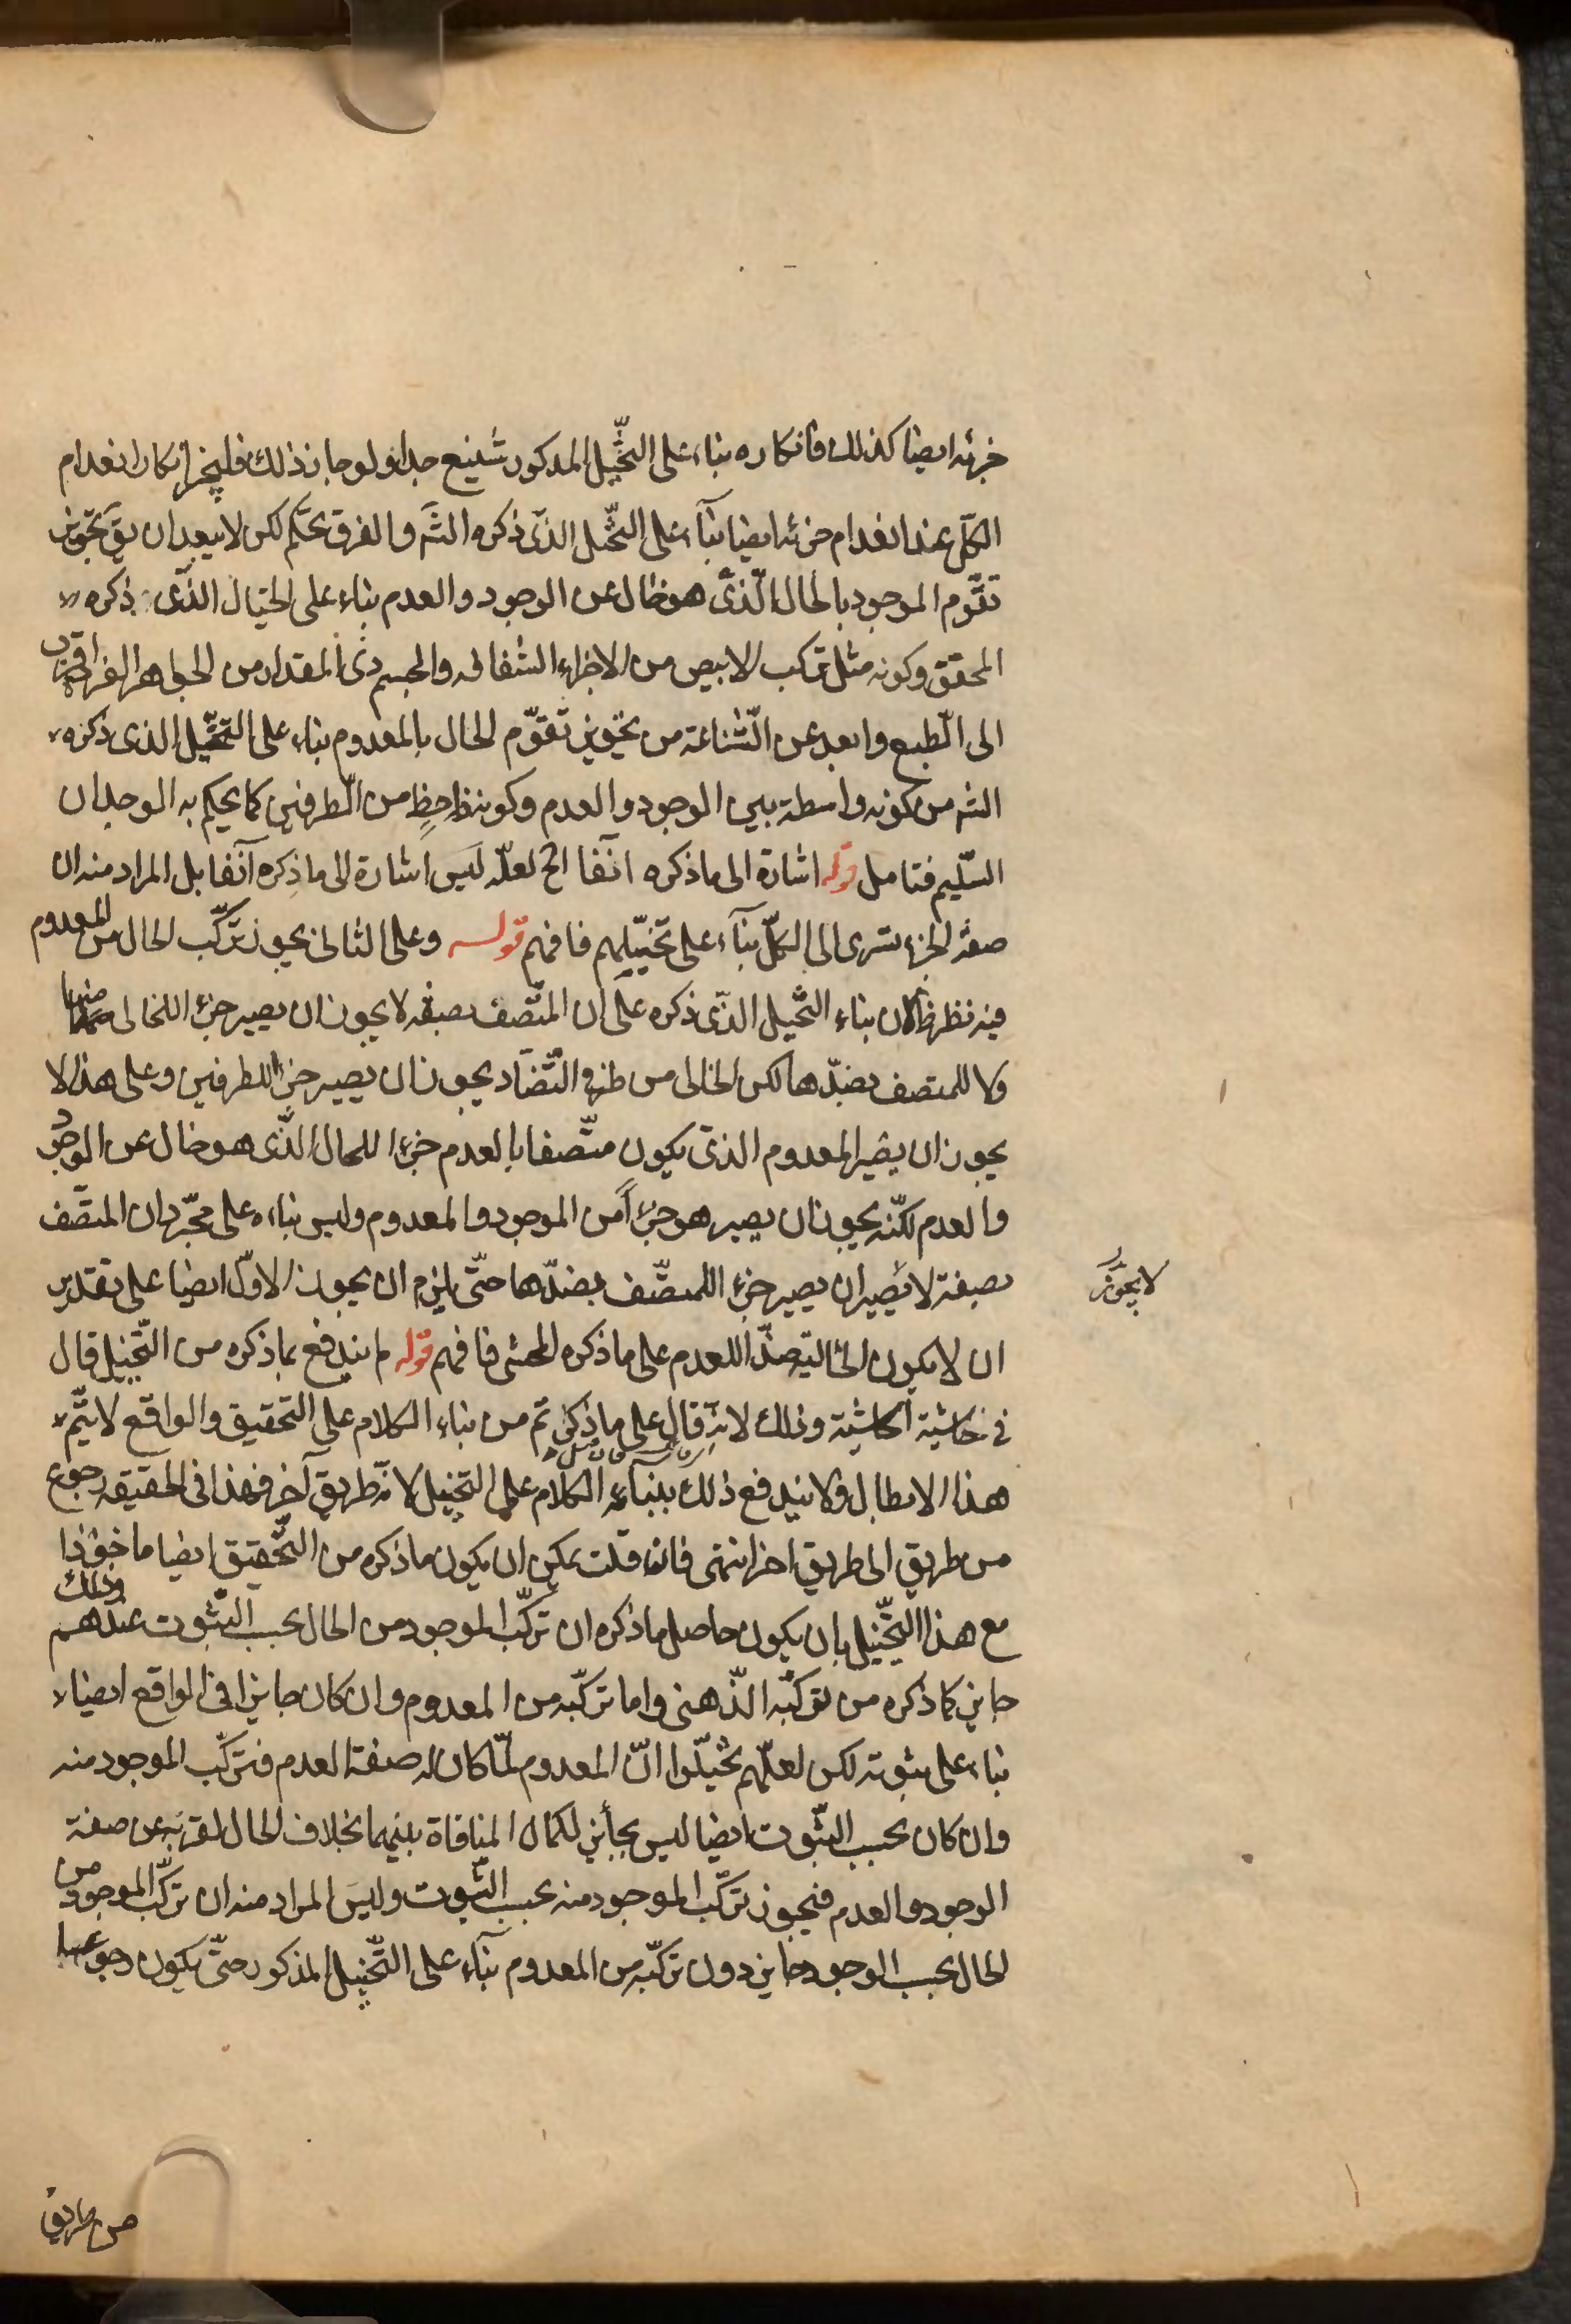 جزئه ايضا كذلك فانكاره بناء على التخيل المذكور شنيع جدا ولو جاز ذلك فليجز انكار انعدام
الكل عند انعدام جزئه ايضا بنآء على التخيل الذى ذكره الشَ والفرق تحكم لكن لا يبعد ان يقَ تجويز
تقوّم الموجود بالحال الّذى هو خال عن الوجود والعدم بناء على الخيال الذّى ذكره
المحقق وكونه مثل تركب الابيض من الاجزاء الشفافه والجسم ذى المقدار من الجواهر الفرد اقرب
الى الّطبع وابعد عن الشّناعة من تجويز تقوّم الحال بالمعدوم بناء على التخيّل الذى ذكره
الشَ من كونه واسطة بين الوجود والعدم وكونه ذا حظٍ من الّطرفين كما يحكم به الوجدان
السّليم فتامل قوله اشارة الى ما ذكره آنفا الخ لعلّه ليَس اشارة الى ما ذكره آنفا بل المراد منه ان
صفة الجزء تسرى الى الكلّ بنآء على تخيّلهم فافهم قولـــه وعلى الثانى يجوز تركّب الحال من المعدوم
فيه نظر لان بناء التّخيل الذّى ذكره على ان المتّصف بصفه لا يجوز ان يصير جزء اللخالى عنها
ولا للمتصف بضدّها لكن الخالى من طرفى التّضاد يجوز ان يصير جزء اللطرفين وعلى هذا لا
يجوز ان يصير المعدوم الذى يكون متّصفا بالعدم جزءا للحال الذّى هو خال عن الوجود
والعدم لكنّه يجوز ان يصير هو جزءاً من الموجود والمعدوم وليس بناءه على مجّرد ان المتصّف
بصفة لا يصير ان يصير جزء اللمتصّف بضدّها حتّى يلزم ان يجوز الاوّل ايضا على تقدير
لا يجوز
ان لا يكون الحالية ضدّا للعدم على ما ذكره المحشى فافهم قوله لم يندفع بما ذكره من التّخيل قال
فى حاشية الحاشية وذلك لانه قال على ما ذكرتم من بناء الكلام على التحقيق والواقع لا يتّم
هذا الابطال ولا يندفع ذلك ببناء الكلام على التخيل لانّه طريق آخر فهذا فى الحقيقه رجوع
من طريق الى طريق اخر انتهى فان قلت يمكن ان يكون ما ذكره من التّحقيق ايضا ماخوذا
مع هذا التخّيل بان يكون حاصل ما ذكره ان تركّب الموجود من الحال بحسب الثّبوت عندهم وذلك
جايز كما ذكره من تركبّه الذّهنى واما تركّبه من المعدوم وان كان جايزا فى الواقع ايضا
بناء على ثبوته لكن لعلّهم تخيّلوا انّ المعدوم لمّا كان له صفة العدم فتركّب الموجود منه
وان كان بحسب الثّبوت ايضا ليس بجائز لكمال المنافاة بينهما بخلاف الحال لقربه عن صفة
الوجود والعدم فيجوز تركّب الموجود منه بحسب الثّبوت وليَس المراد منه ان تركّب الموجود من
الحال بحسب الوجود جايز دون تركّبه من المعدوم بنآء على التّخيل المذكور حتّى يكون رجوعا
من طريق